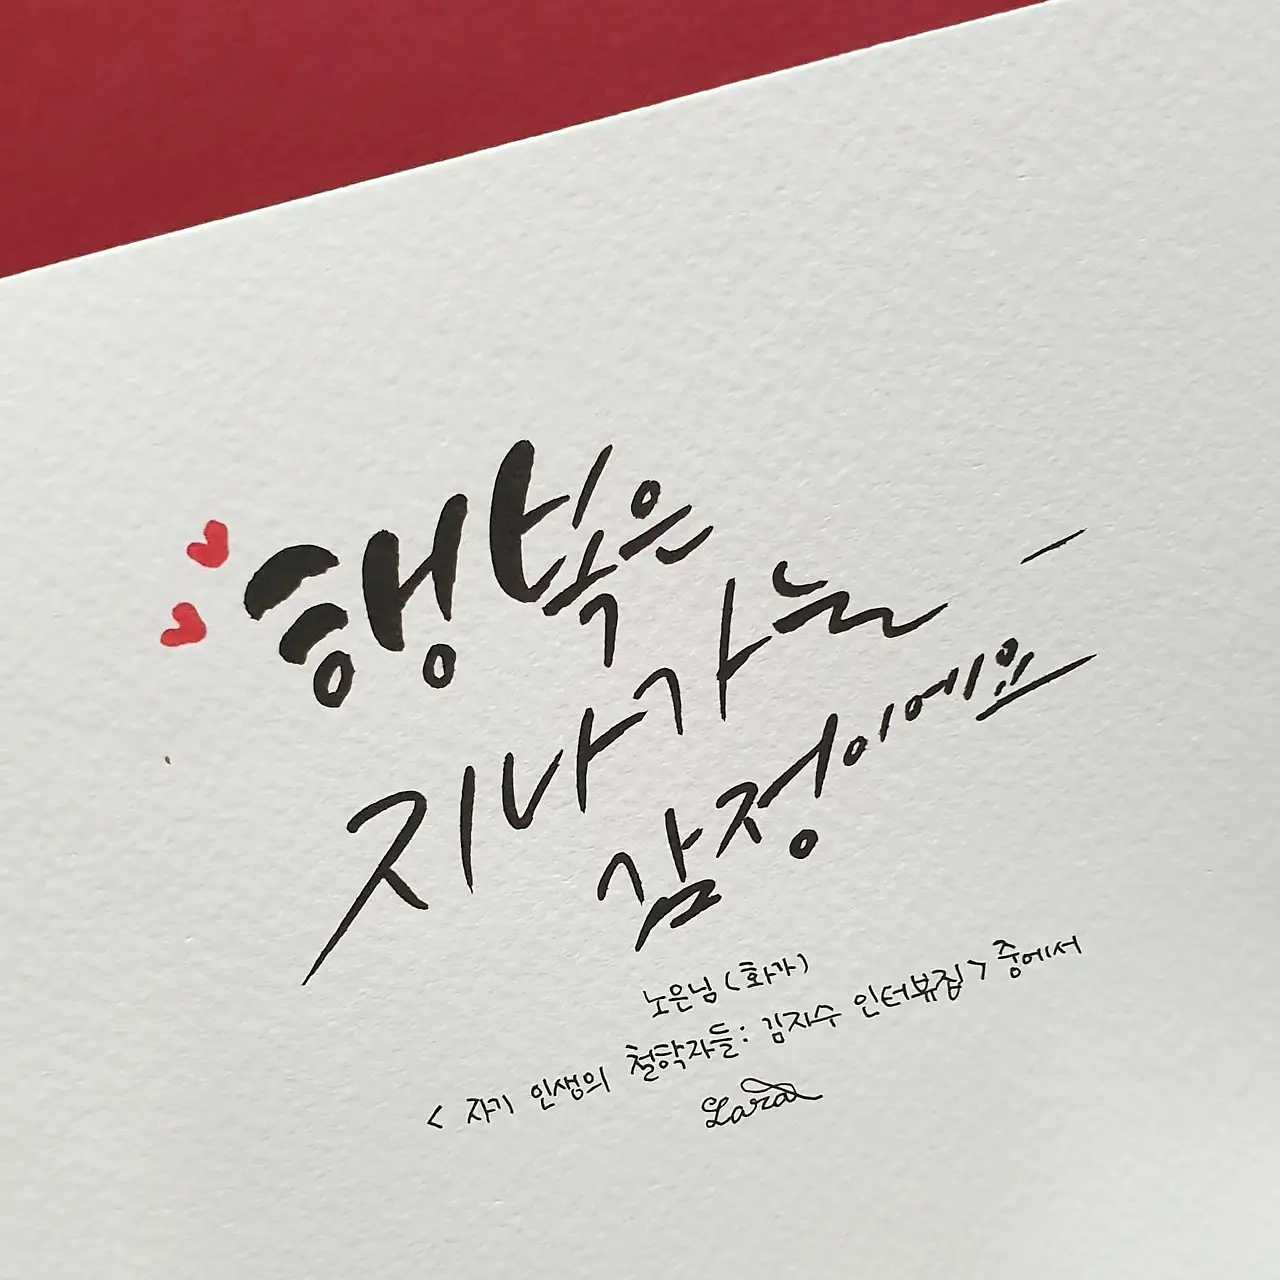 행복은
지나가는
감정이에요
노은님(화가)
<자기 인생의 철학자들: 김지수 인터뷰집> 중에서
Lara